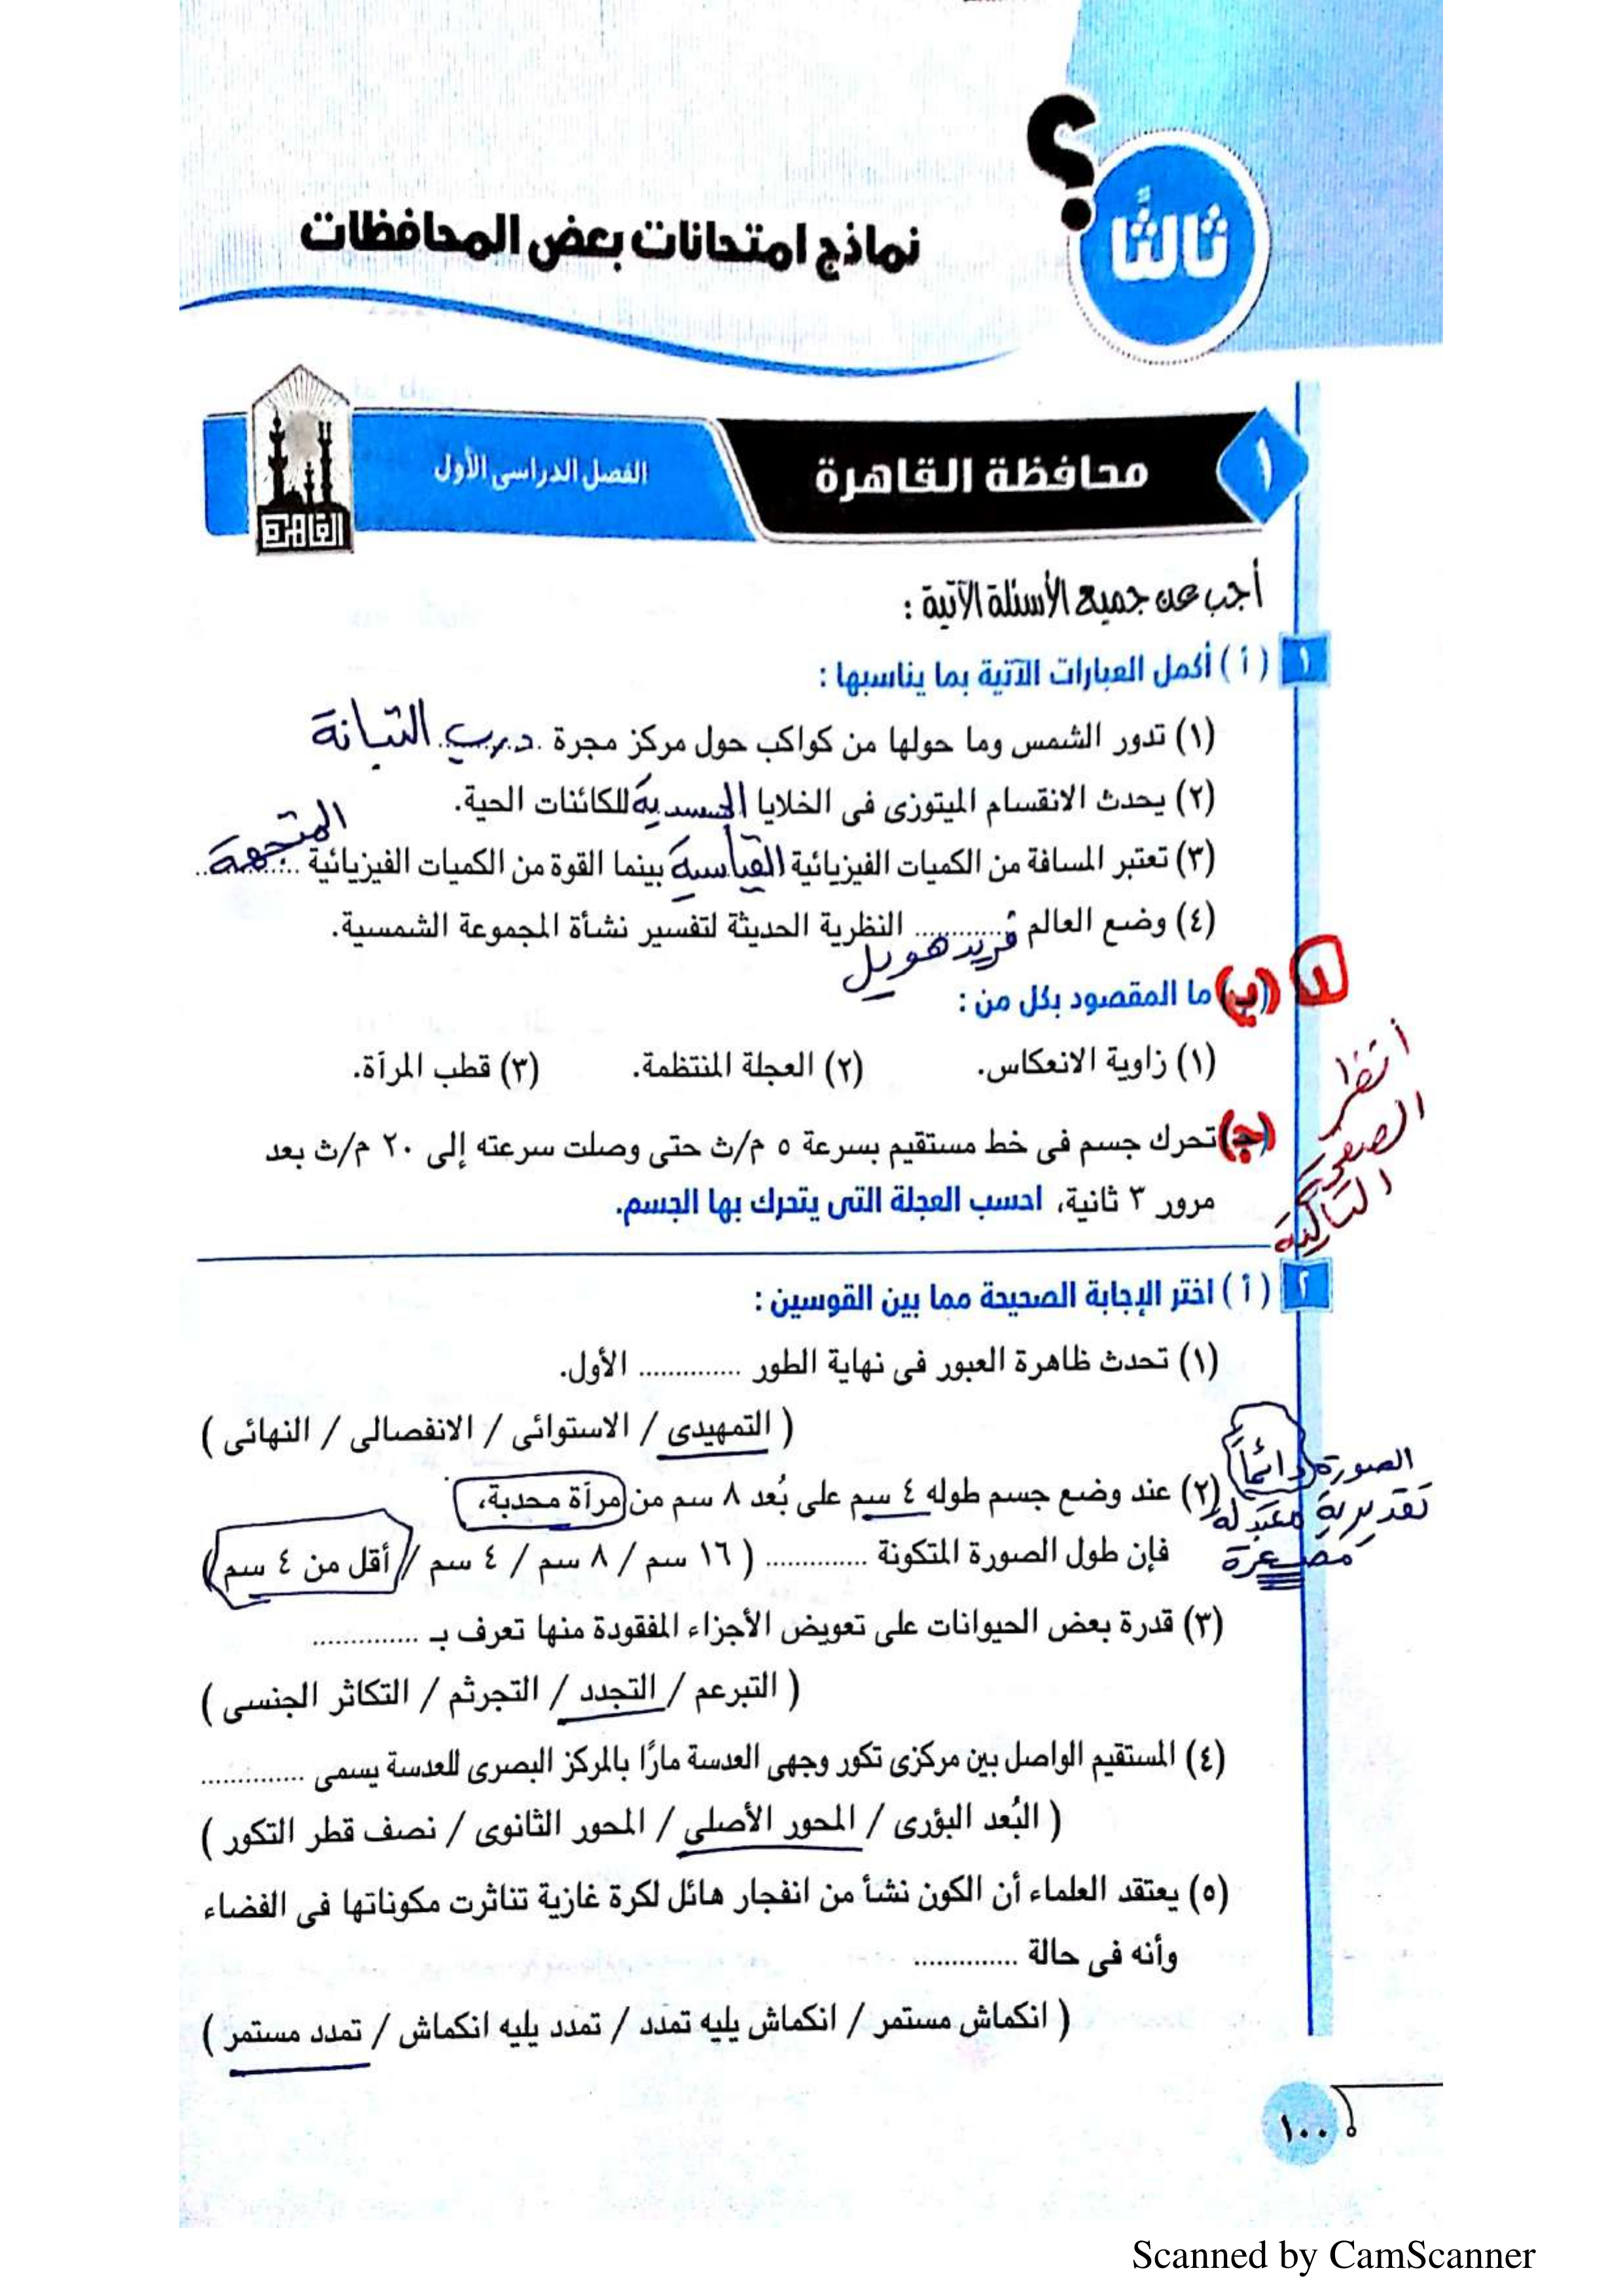 ثالثًا
؟
نماذج امتحانات بعض المحافظات
١
محافظة القاهرة
الفصل الدراسى الأول
القاهرة
أجب عن جميع الأسئلة الآتية :
١ ( أ ) أكمل العبارات الآتية بما يناسبها :
(١) تدور الشمس وما حولها من كواكب حول مركز مجرة درب التبانة
(٢) يحدث الانقسام الميتوزى فى الخلايا الجسدية للكائنات الحية.
(٣) تعتبر المسافة من الكميات الفيزيائية القياسية بينما القوة من الكميات الفيزيائية المتجهة
(٤) وضع العالم فريد هويل النظرية الحديثة لتفسير نشأة المجموعة الشمسية.
١ (ب) ما المقصود بكل من :
(١) زاوية الانعكاس. (٢) العجلة المنتظمة. (٣) قطب المرآة.
انظر الصفحة التالية
(ج) تحرك جسم فى خط مستقيم بسرعة ٥ م/ث حتى وصلت سرعته إلى ٢٠ م/ث بعد
مرور ٣ ثانية، احسب العجلة التى يتحرك بها الجسم.
٢ ( أ ) اختر الإجابة الصحيحة مما بين القوسين :
(١) تحدث ظاهرة العبور فى نهاية الطور .............. الأول.
( التمهيدى / الاستوائى / الانفصالى / النهائى )
(٢) عند وضع جسم طوله ٤ سم على بُعد ٨ سم من مرآة محدبة،
فإن طول الصورة المتكونة .............. ( ١٦ سم / ٨ سم / ٤ سم / أقل من ٤ سم )
الصورة دائماً
تقديرية معتدلة
مصغرة
(٣) قدرة بعض الحيوانات على تعويض الأجزاء المفقودة منها تعرف بـ ..............
( التبرعم / التجدد / التجرثم / التكاثر الجنسى )
(٤) المستقيم الواصل بين مركزى تكور وجهى العدسة مارًا بالمركز البصرى للعدسة يسمى ..............
( البُعد البؤرى / المحور الأصلى / المحور الثانوى / نصف قطر التكور )
(٥) يعتقد العلماء أن الكون نشأ من انفجار هائل لكرة غازية تناثرت مكوناتها فى الفضاء
وأنه فى حالة ..............
( انكماش مستمر / انكماش يليه تمدد / تمدد يليه انكماش / تمدد مستمر )
١٠٠
Scanned by CamScanner